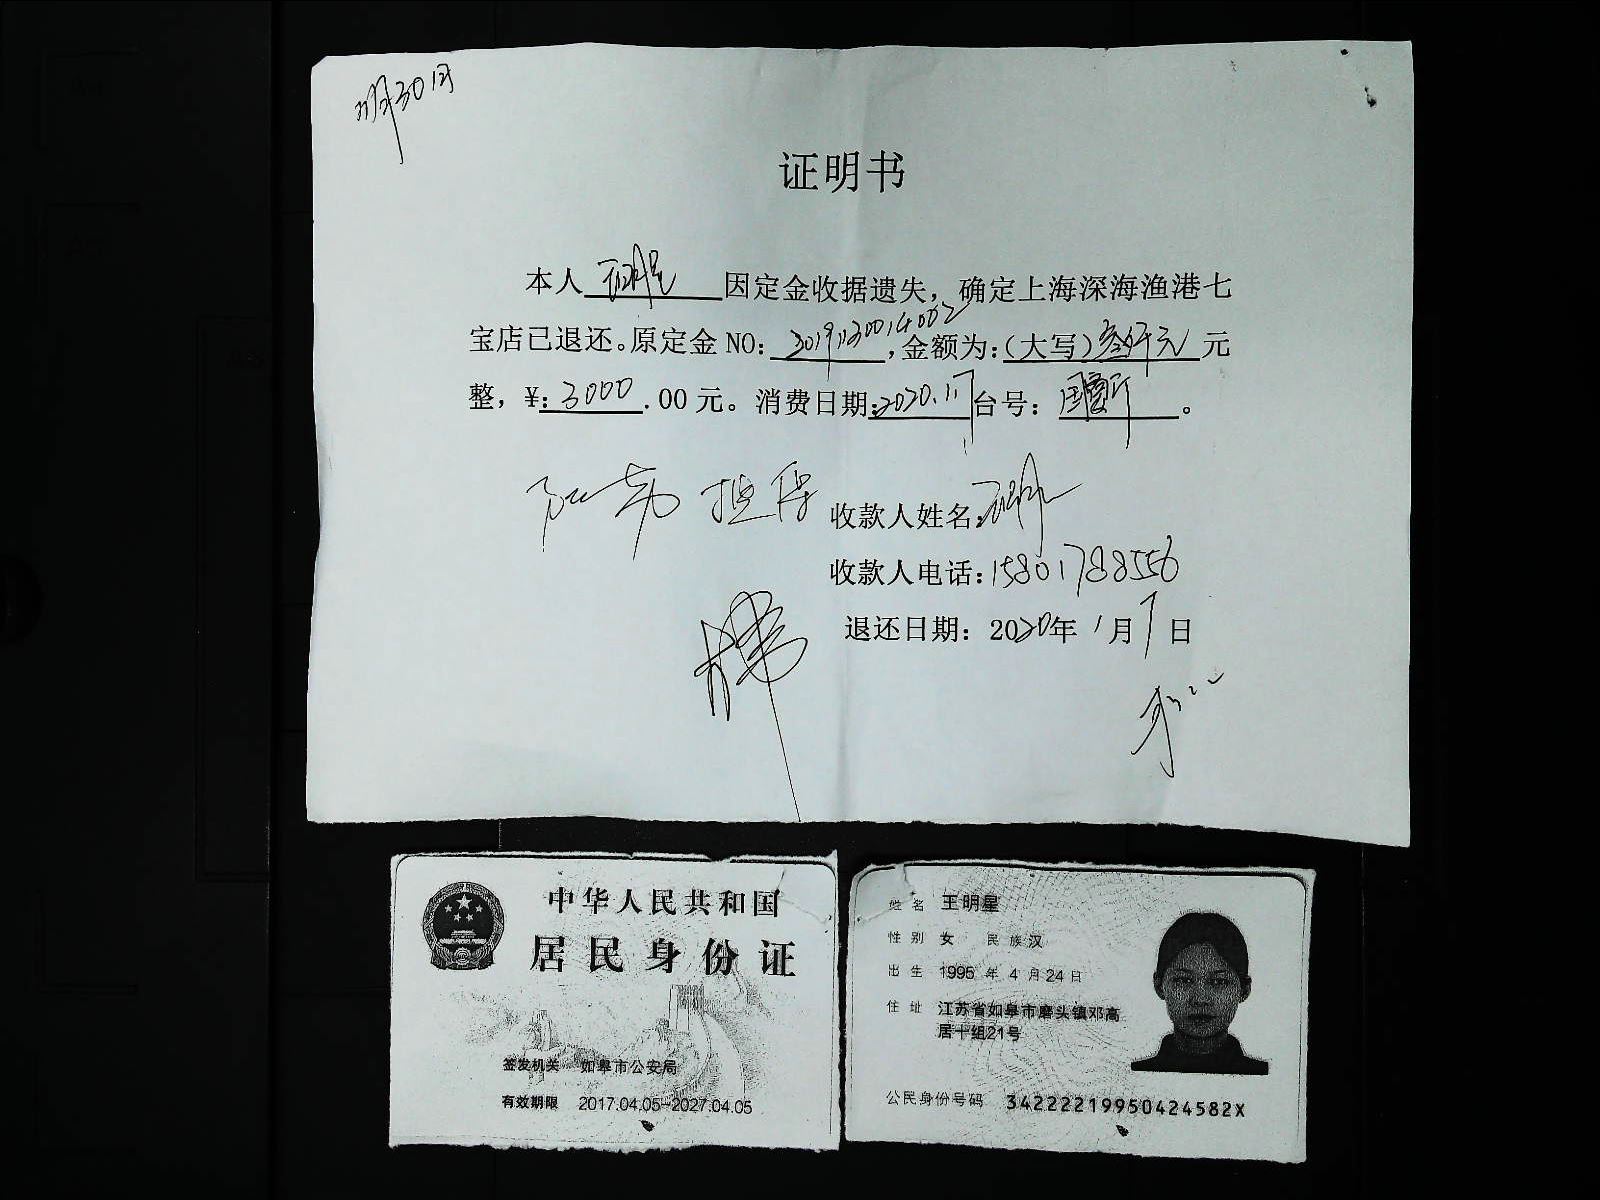 11月30日
证明书
本人 王明星 因定金收据遗失，确定上海深海渔港七
宝店已退还。原定金 NO: 30191130014002，金额为：（大写）叁仟元 元
整，¥: 3000 .00 元。消费日期: 2020.1.1 台号： 国宴厅 。
担保
收款人姓名: 王明星
收款人电话: 15801788556
退还日期： 2020年 1 月 1 日
中华人民共和国
居民身份证
签发机关 如皋市公安局
有效期限 2017.04.05-2027.04.05
姓名 王明星
性别 女 民族 汉
出生 1995 年 4 月 24 日
住址 江苏省如皋市磨头镇邓高
居十组21号
公民身份号码 34222219950424582X